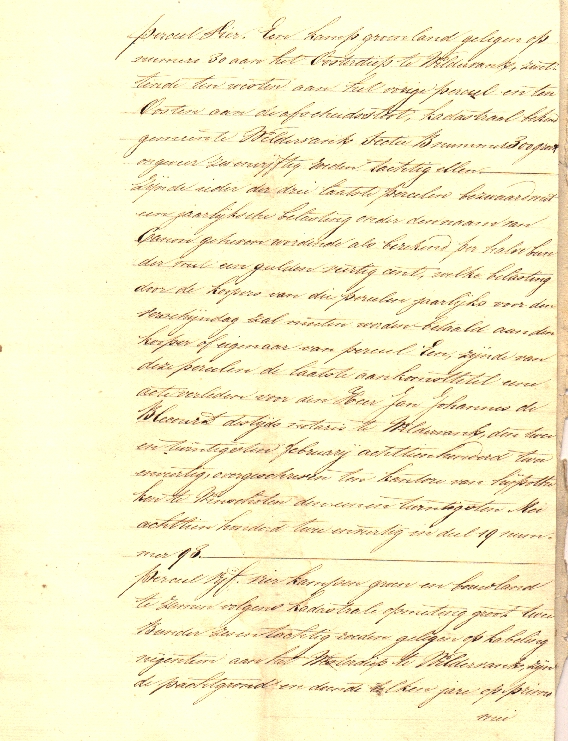 perceel Vier. Een kamp groenland gelegen op
numero 30 aan het Oosterdiep te Wildervank, zwet-
tende ten westen aan het vorige perceel en ten
Oosten aan de afscheidssloot, kadastraal bekend
gemeente Wildervank Sectie B nummer 300 groot
ongeveer zevenvijftig roeden tachtig ellen.
Zijnde ieder der drie laatste perceelen bezwaard met
een jaarlijksche belasting onder den naam van
Canon geheven wordende als berekend per halve bun-
der met een gulden veertig cent, welke belasting
door de koopers van die perceelen jaarlijks voor den
verschijndag zal moeten worden betaald aan den
kooper of eigenaar van perceel Een, zijnde van
deze perceelen de laatste aankomsttitel eene
acte verleden voor den Heer Jan Johannes de
destijds notaris te Wildervank, den twee
en twintigsten february achttienhonderd twee
enveertig, overgeschreven ten kantore van hypothe-
ken te Winschoten den eenen twintigsten Mei
achttien honderd twee enveertig in deel 19 num-
mer 98.
perceel Vijf. vier kampen groen en bouwland
te zamen volgens kadastrale opmeting groot twee
Bunder zeven tachtig roeden gelegen op kabeling
negentien aan het Westerdiep te Wildervank, zijn-
de pachtgrond en doende elken jare op primo
mei